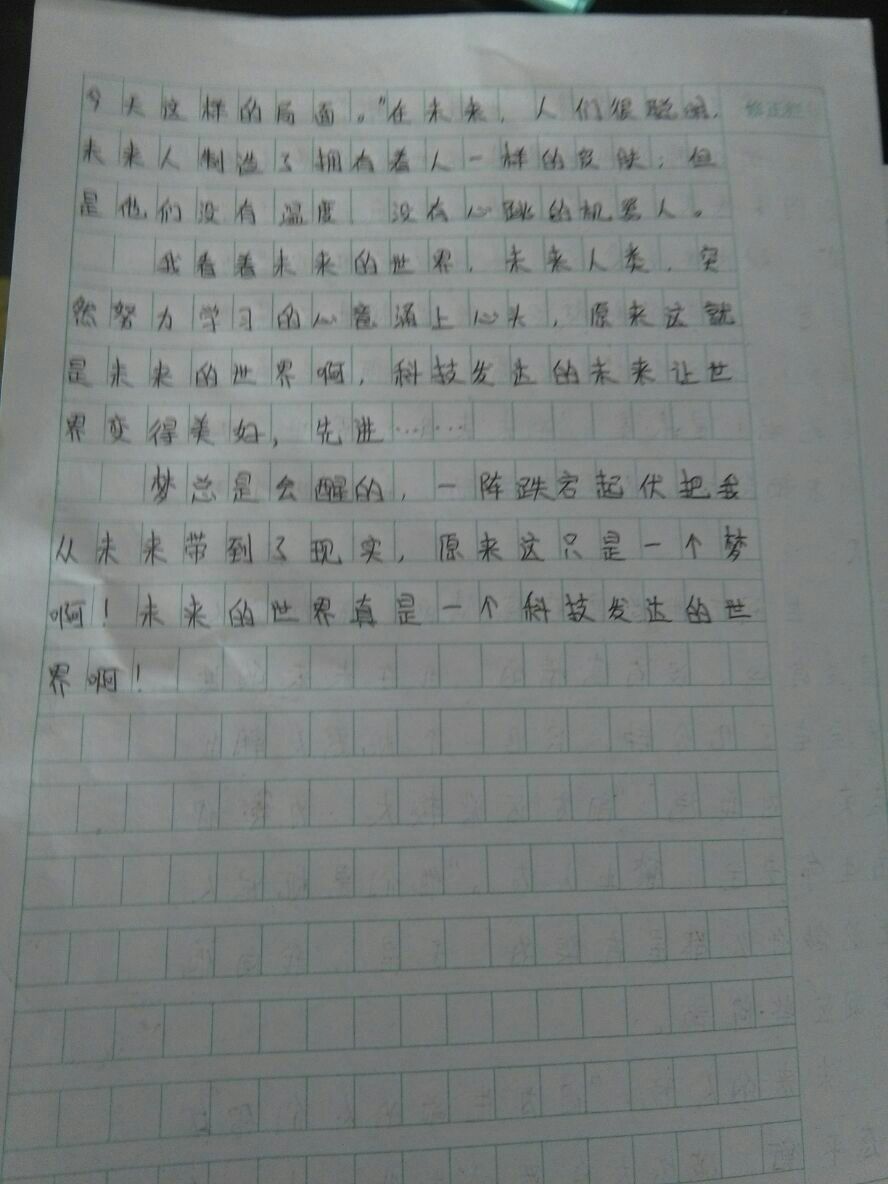 今天这样的局面。"在未来，人们很聪明，
未来人制造了拥有着人一样的皮肤，但
是他们没有温度 没有心跳的机器人。
我看着未来的世界，未来人类，突
然努力学习的心意涌上心头，原来这就
是未来的世界啊，科技发达的未来让世
界变得美好，先进……
梦总是会醒的，一阵跌宕起伏把我
从未来带到了现实，原来这只是一个梦
啊！未来的世界真是一个科技发达的世
界啊！